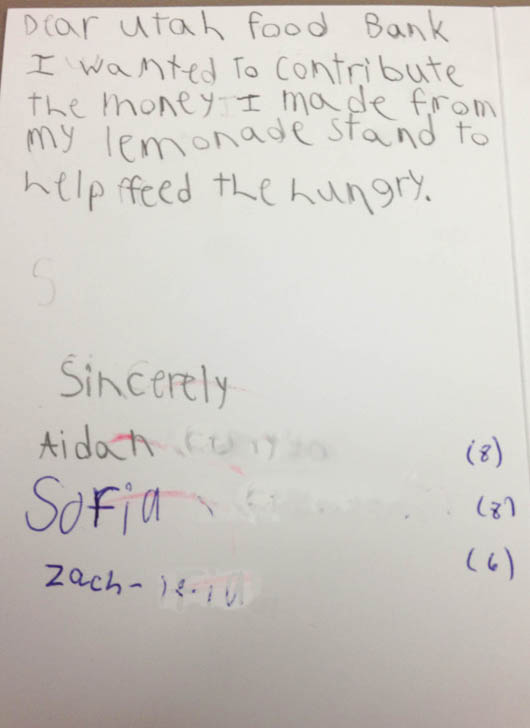 Dear Utah Food Bank
I wanted To contribute
the money I made from
my lemonade stand to
help feed the hungry.
S
Sincerely
Aidan (8)
Sofia (8)
Zach- (6)